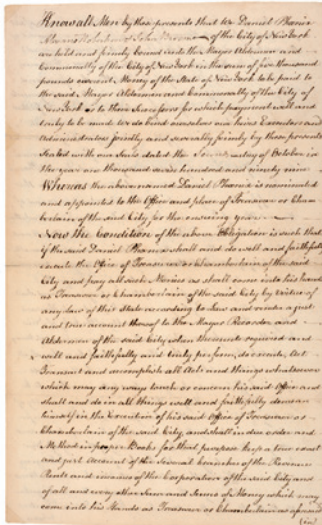 Know all Men by these presents that We Daniel Phoenix
of the City of New York
are held and firmly bound unto the Mayor Aldermen and
Commonalty of the City of New York in the sum of five thousand
pounds current Money of the State of New York to be paid to
the said Mayor Aldermen and Commonalty of the City of
New York or to their Successors for which payment well and
truly to be made We do bind ourselves our heirs Executors and
Administrators jointly and severally firmly by these presents
Sealed with our Seals dated the day of October in
the year one thousand seven hundred and ninety nine
Whereas the above named Daniel Phoenix is nominated
and appointed to the Office and place of Treasurer or Cham-
berlain of the said City for the ensuing year
Now the Condition of the above Obligation is such that
if the said Daniel Phoenix shall and do well and faithfully
execute the Office of Treasurer or Chamberlain of the said
City and pay all such Monies as shall come into his hands
as Treasurer or Chamberlain of the said City by virtue of
any law of this State according to Law and render a just
and true account thereof to the Mayor Recorder and
Aldermen of the said City when thereunto required and
well and faithfully and truly perform, do execute, Act
Transact and accomplish all Acts and things whatsoever
which may any ways touch or concern his said Office and
shall and do in all things well and faithfully demean
himself in the Execution of his said Office of Treasurer or
Chamberlain of the said City and shall in due order and
Method in proper Books for that purpose keep a true
and just Account of the several branches of the Revenue
Rents and incomes of the Corporation of the said City and
of all and every other Sum and Sums of Money which may
come into his Hands as Treasurer or Chamberlain as aforesaid